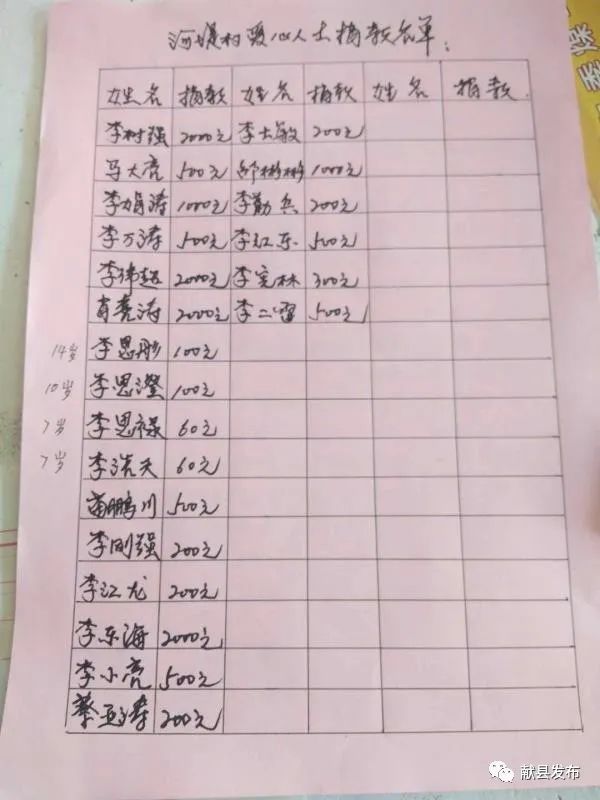 河堤村爱心人士捐款名单：
姓名 捐款 姓名 捐款 姓名 捐款
李树强 2000元 李士敏 200元
马大亮 500元 邹彬彬 1000元
李娟涛 1000元 李勤兵 200元
李万涛 500元 李红东 500元
李伟超 2000元 李宪林 300元
肖亮涛 2000元 李二 500元
14岁 李思彤 100元
10岁 李思澄 100元
7岁 李思禄 60元
7岁 李浩天 60元
鹏川 500元
李刚强 200元
李江龙 200元
李东海 2000元
李小亮 500元
蔡亚涛 200元
献县发布